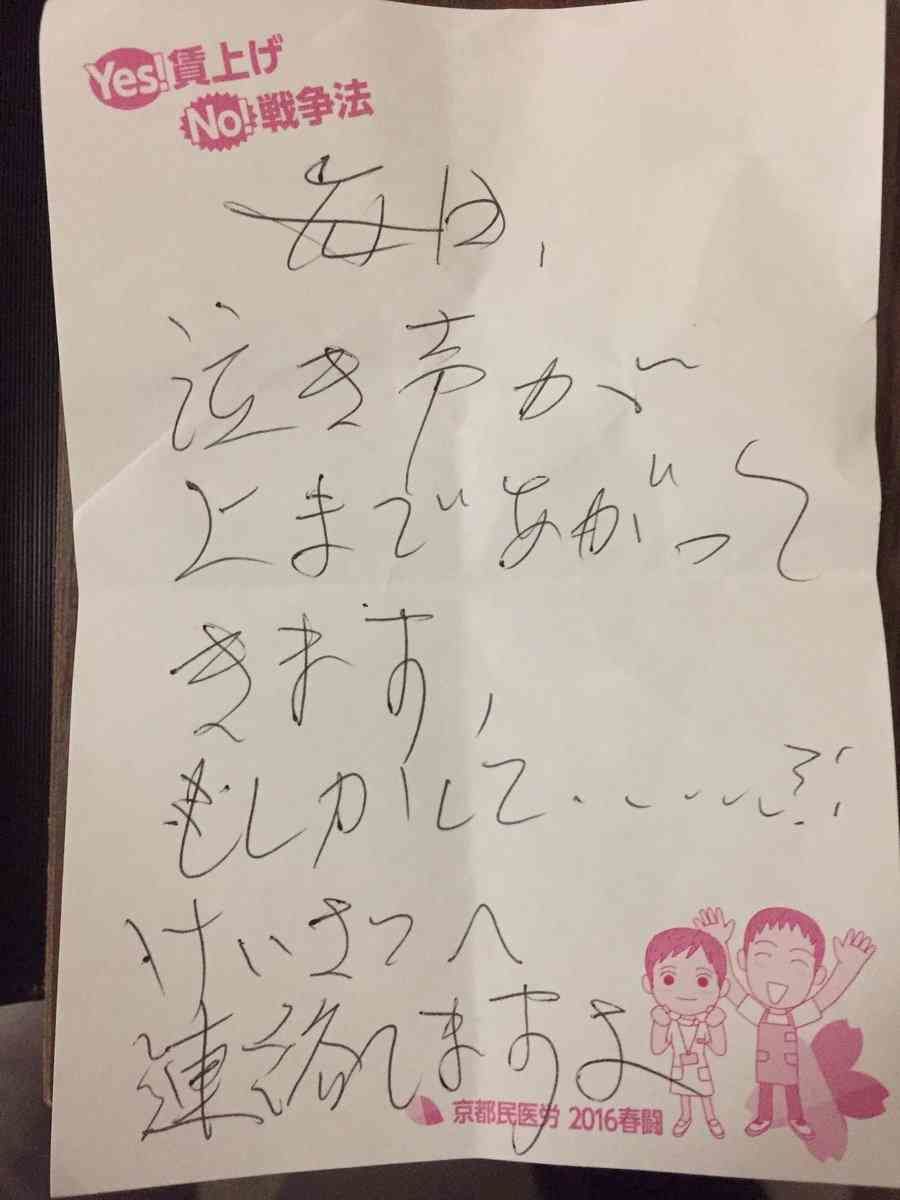 Yes!賃上げ
No!戦争法
毎日、
泣き声が
上まであがって
きます、
もしかして・・・・・・・・
けいさつへ
連絡しますよ
京都民医労 2016春闘